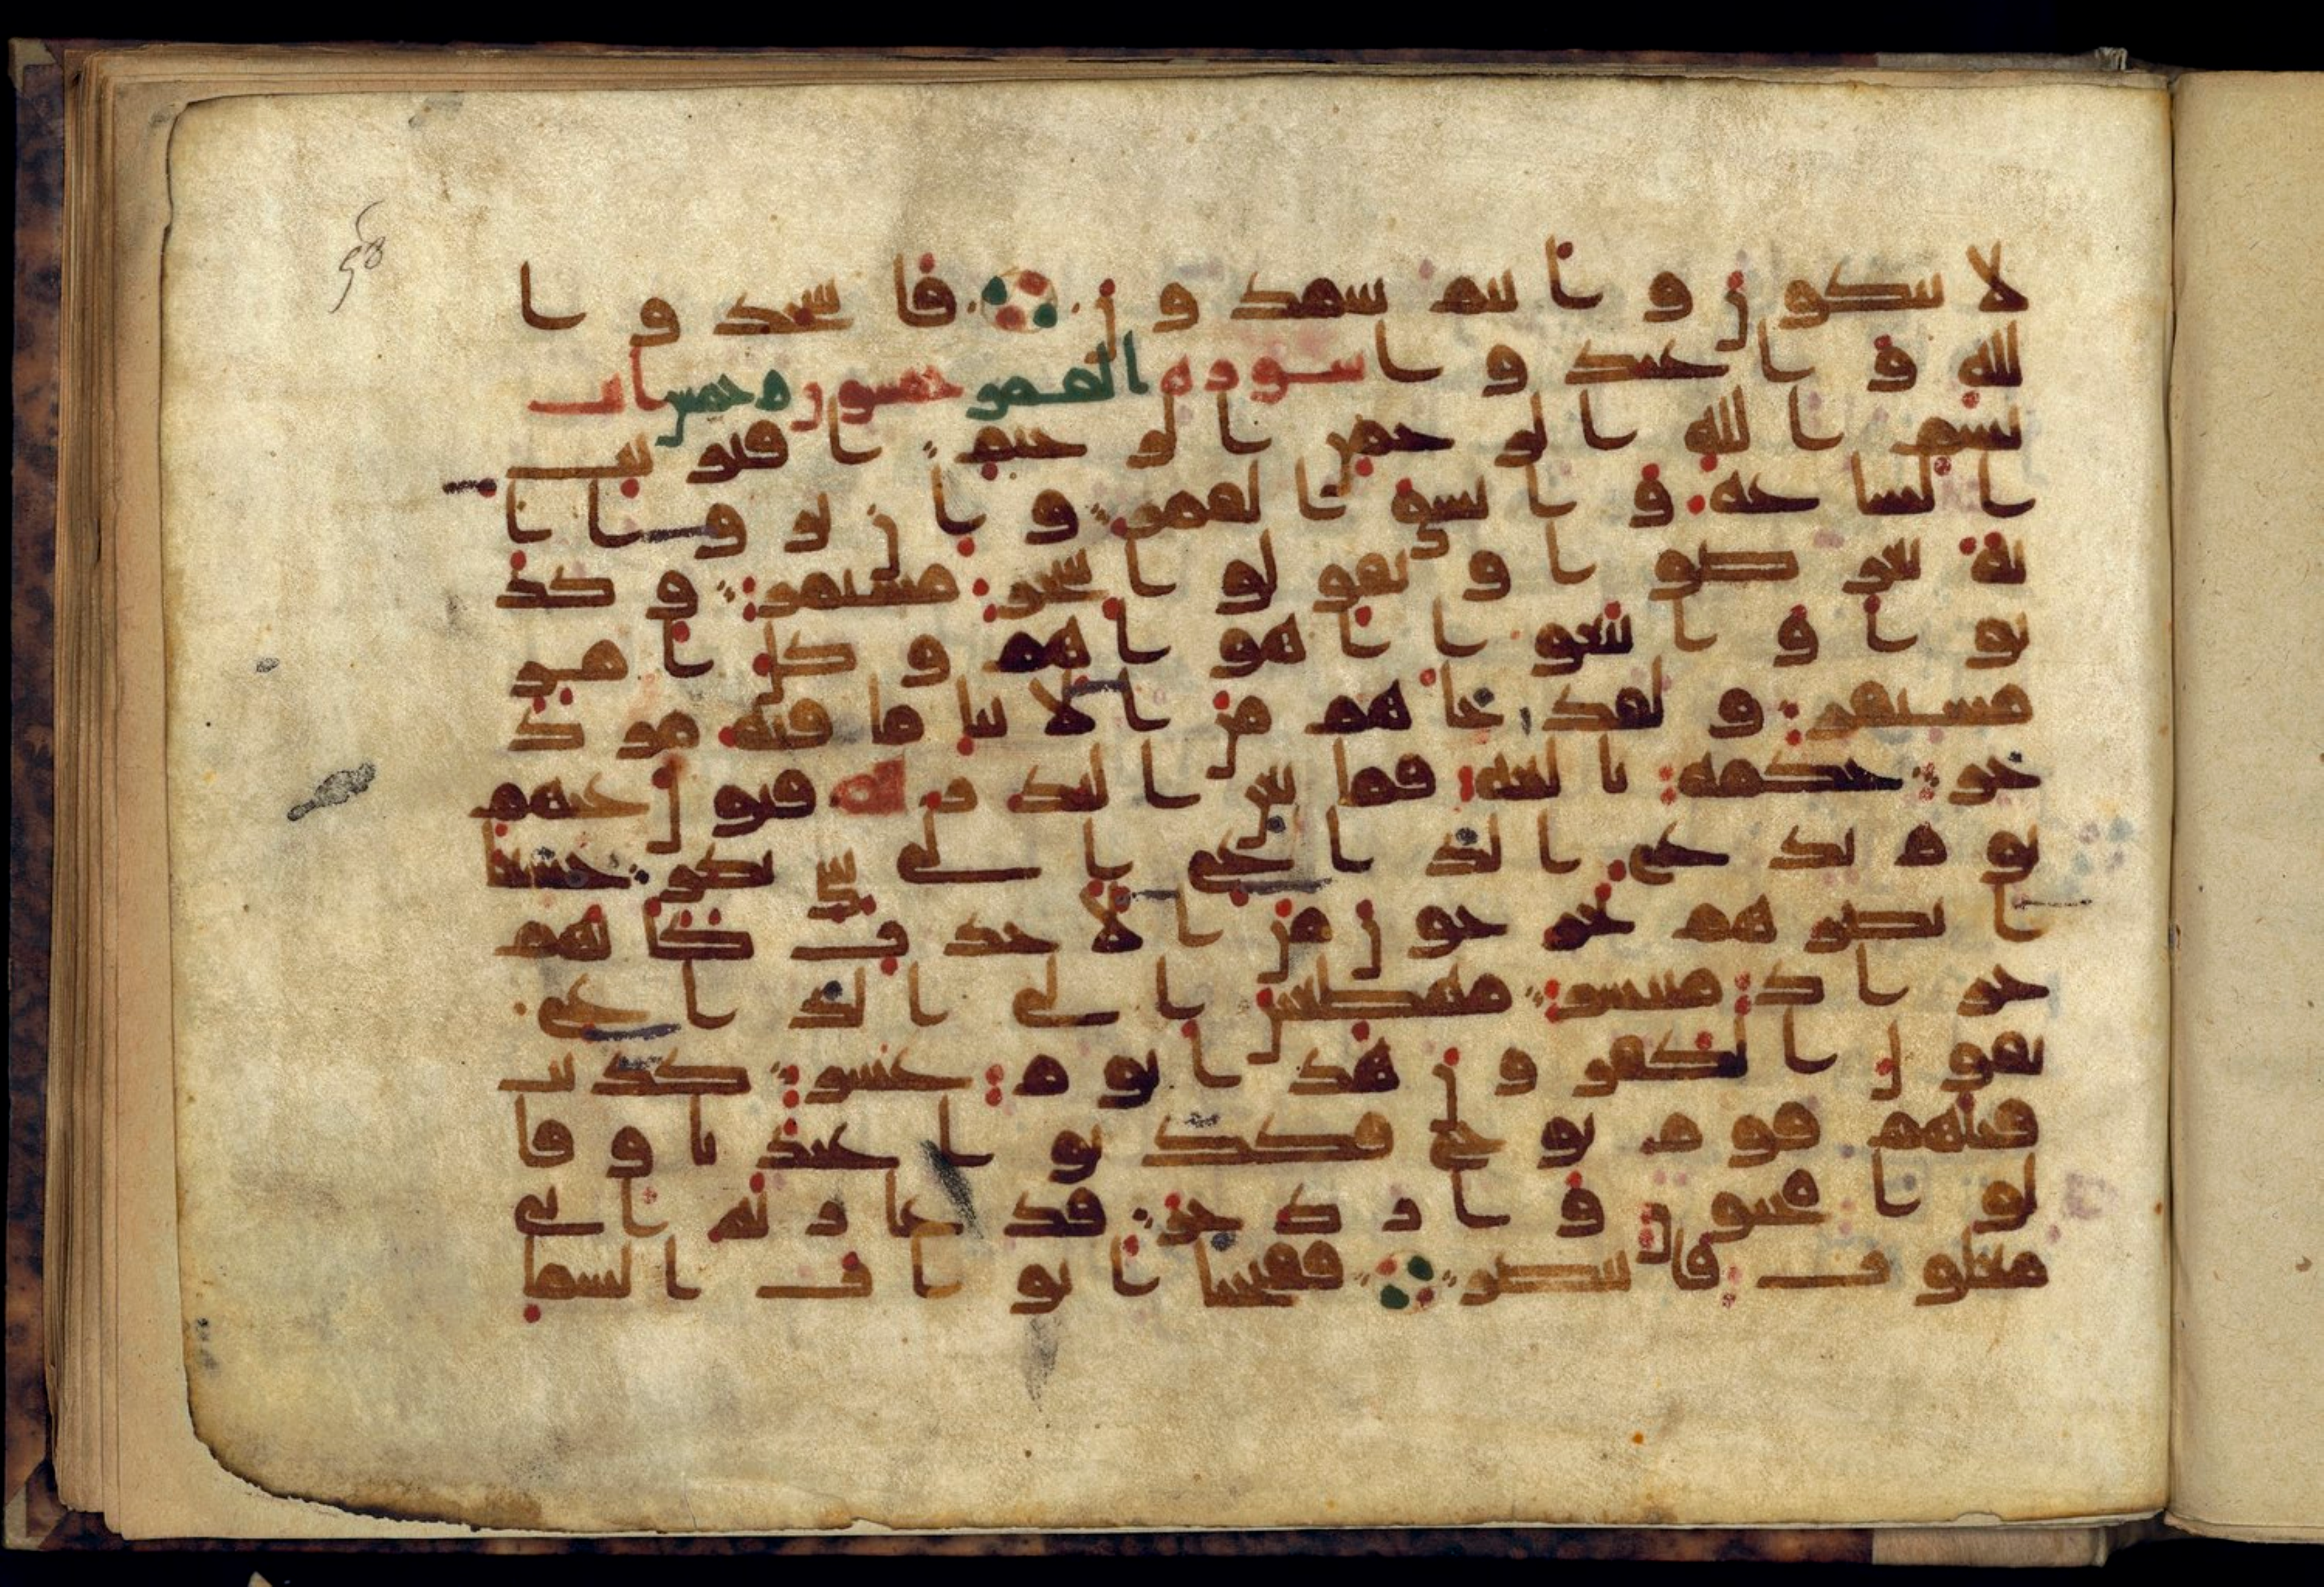 58
لا تبكون وانتم سمدون فاسجدوا
لله واعبدوا سورة القمر خمسون وخمس ايت
بسم الله الرحمن الرحيم اقتربت
الساعة وانشق القمر وان يروا ا
ية يعرضوا ويقولوا سحر مستمر وكذ
بوا واتبعوا اهواهم وكل امر
مستقر ولقد جاهم من الانبا ما فيه مزد
جر حكمة بلغة فما تغن النذر فتول عنهم
يوم يدع الداع الى شى نكر خشعا
ابصرهم يخرجون من الاجدث كانهم
جراد منتشر مهطعين الى الداع
يقول الكفرون هذا يوم عسر كذبت
قبلهم قوم نوح فكذبوا عبدنا وقا
لوا مجنون وازدجر فدعا ربه انى
مغلوب فانتصر ففتحنا ابوب السما